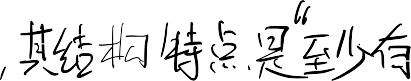 ,其结构特点是“至少有